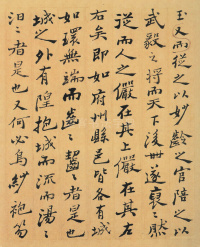 玉又而從之以妙齡之官陪之以
武毅之將而天下後世遂裒然
從而人之儼在其上儼在其左
右矣即如府州縣邑皆各有城
如環無端而齒齒齧者是也
城之外有隍抱城而流而湯湯
汩汩者是也又何必烏紗袍笏